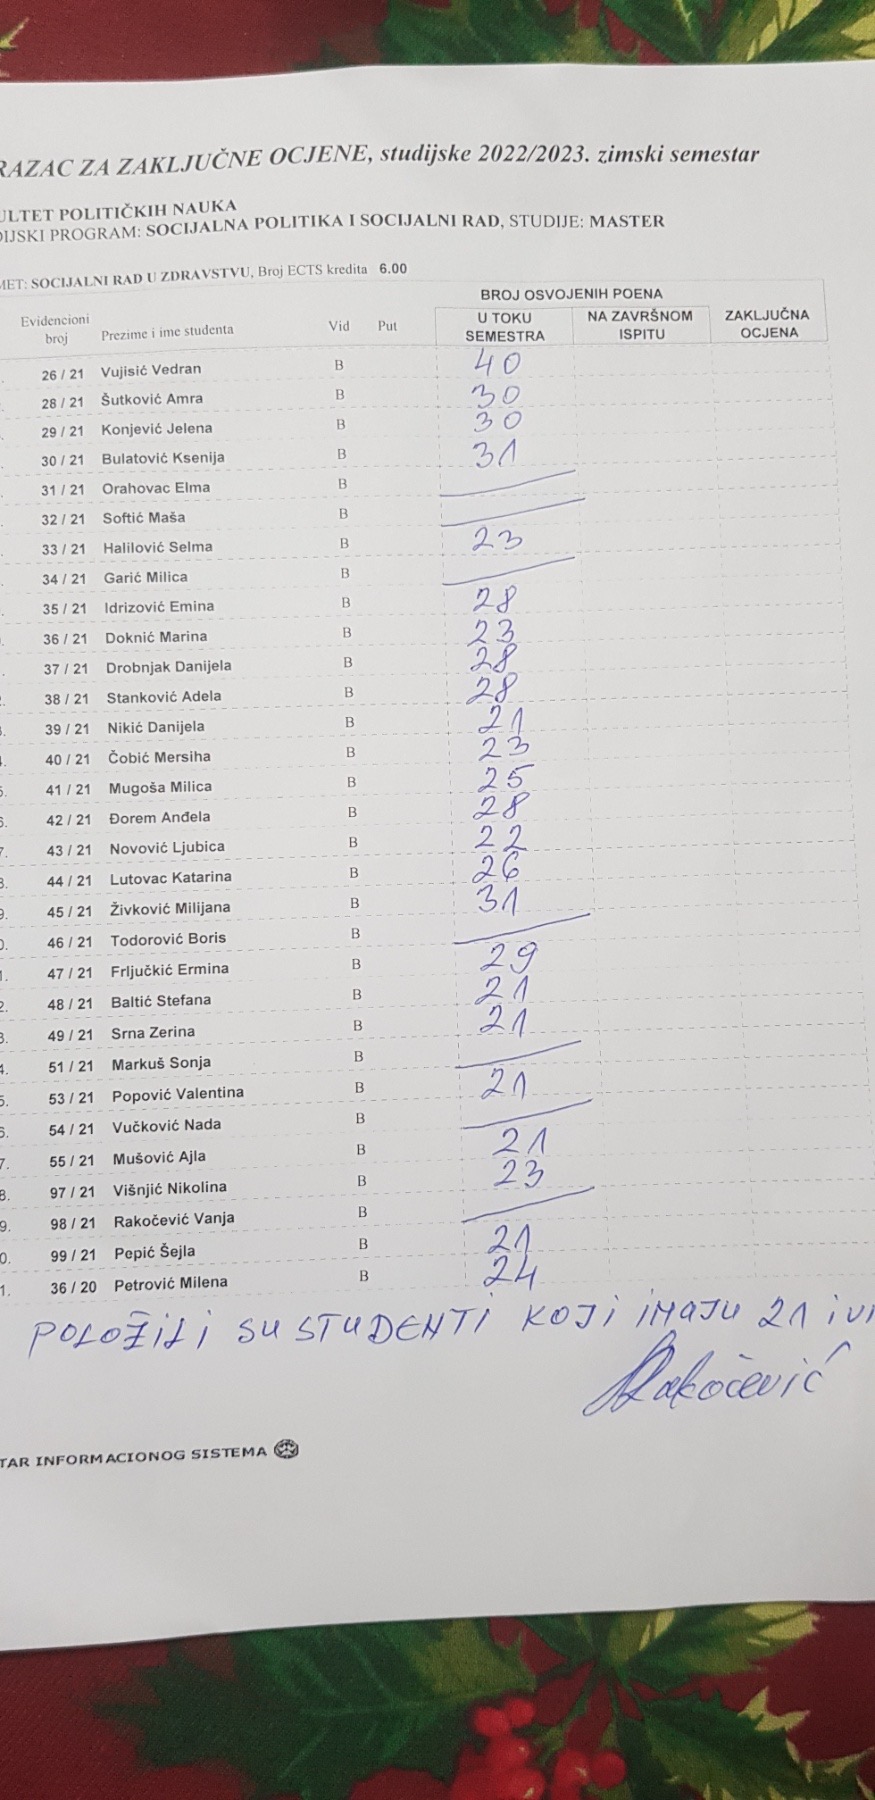 RAZAC ZA ZAKLJUČNE OCJENE, studijske 2022/2023. zimski semestar
ULTET POLITIČKIH NAUKA
DIJSKI PROGRAM: SOCIJALNA POLITIKA I SOCIJALNI RAD, STUDIJE: MASTER
MET: SOCIJALNI RAD U ZDRAVSTVU, Broj ECTS kredita 6.00
BROJ OSVOJENIH POENA
Evidencioni broj Prezime i ime studenta Vid Put U TOKU SEMESTRA NA ZAVRŠNOM ISPITU ZAKLJUČNA OCJENA
. 26 / 21 Vujisić Vedran B 40
. 28 / 21 Šutković Amra B 30
. 29 / 21 Konjević Jelena B 30
. 30 / 21 Bulatović Ksenija B 31
. 31 / 21 Orahovac Elma B
. 32 / 21 Softić Maša B
. 33 / 21 Halilović Selma B 23
. 34 / 21 Garić Milica B
. 35 / 21 Idrizović Emina B 28
. 36 / 21 Doknić Marina B 23
. 37 / 21 Drobnjak Danijela B 28
. 38 / 21 Stanković Adela B 28
3. 39 / 21 Nikić Danijela B 21
. 40 / 21 Čobić Mersiha B 23
5. 41 / 21 Mugoša Milica B 25
6. 42 / 21 Đorem Anđela B 28
7. 43 / 21 Novović Ljubica B 22
8. 44 / 21 Lutovac Katarina B 26
9. 45 / 21 Živković Milijana B 31
0. 46 / 21 Todorović Boris B
1. 47 / 21 Frljučkić Ermina B 29
2. 48 / 21 Baltić Stefana B 21
3. 49 / 21 Srna Zerina B 21
4. 51 / 21 Markuš Sonja B
5. 53 / 21 Popović Valentina B 21
6. 54 / 21 Vučković Nada B
7. 55 / 21 Mušović Ajla B 21
8. 97 / 21 Višnjić Nikolina B 23
9. 98 / 21 Rakočević Vanja B
0. 99 / 21 Pepić Šejla B 21
1. 36 / 20 Petrović Milena B 24
POLOŽILI SU STUDENTI KOJI IMAJU 21 I VI
Rakočević
TAR INFORMACIONOG SISTEMA